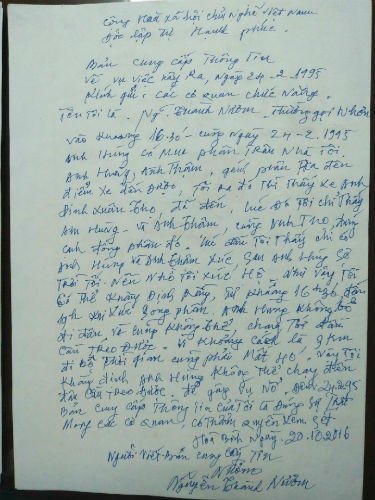 Cộng Hoà xã hội chủ Nghĩa Việt Nam
Độc lập Tự Hạnh phúc.
Bản cung cấp Thông Tin
Về vụ việc xảy Ra, Ngày 24-2-1995
Kính gửi: Các cơ quan chức Năng.
Tên Tôi là. Ngô Thành Nhơm. Thường gọi Nhôm
Vào khoảng 16h30' cùng Ngày 24-2-1995
Anh Hùng có Mua phân Trâu Nhà Tôi.
Anh Hùng, Anh Thâm, gánh phân Ra đến
điểm xe đến Được, Tôi Ra đó Thì Thấy xe Anh
Đinh Xuân Thọ, đã đến, lúc đó Tôi chỉ Thấy
Anh Hùng và Anh Thâm, cùng Anh Thọ đứng
cạnh đống phân đó. Lúc đầu Tôi Thấy chỉ có
Anh Hùng và Anh Thâm xúc Sau Anh Hùng Sợ
Trời Tối. Nên Nhờ Tôi xúc Hộ như vậy Tôi
Có Thể khẳng Định Rằng, Từ khoảng 16h30 đến
khi xúc xong phân, Anh Hùng không bỏ
đi đâu, và cũng không Thể, chạy Tới đầu
Cầu Treo Được. Vì khoảng cách là 9km
đi bộ Thời gian cũng phải Mất Hơn, Vậy Tôi
khẳng định Anh Hùng không Thể chạy đến
đầu Cầu Treo Được. để gây vụ Nổ. 24-2-95
Bản cung cấp Thông Tin của Tôi là Đúng Sự Thật
Mong các cơ quan, có thẩm quyền xem xét
Hoà Bình Ngày 20.10.2016
Người viết Bản cung cấp Tin
Nhôm
Nguyễn Thành Nhôm